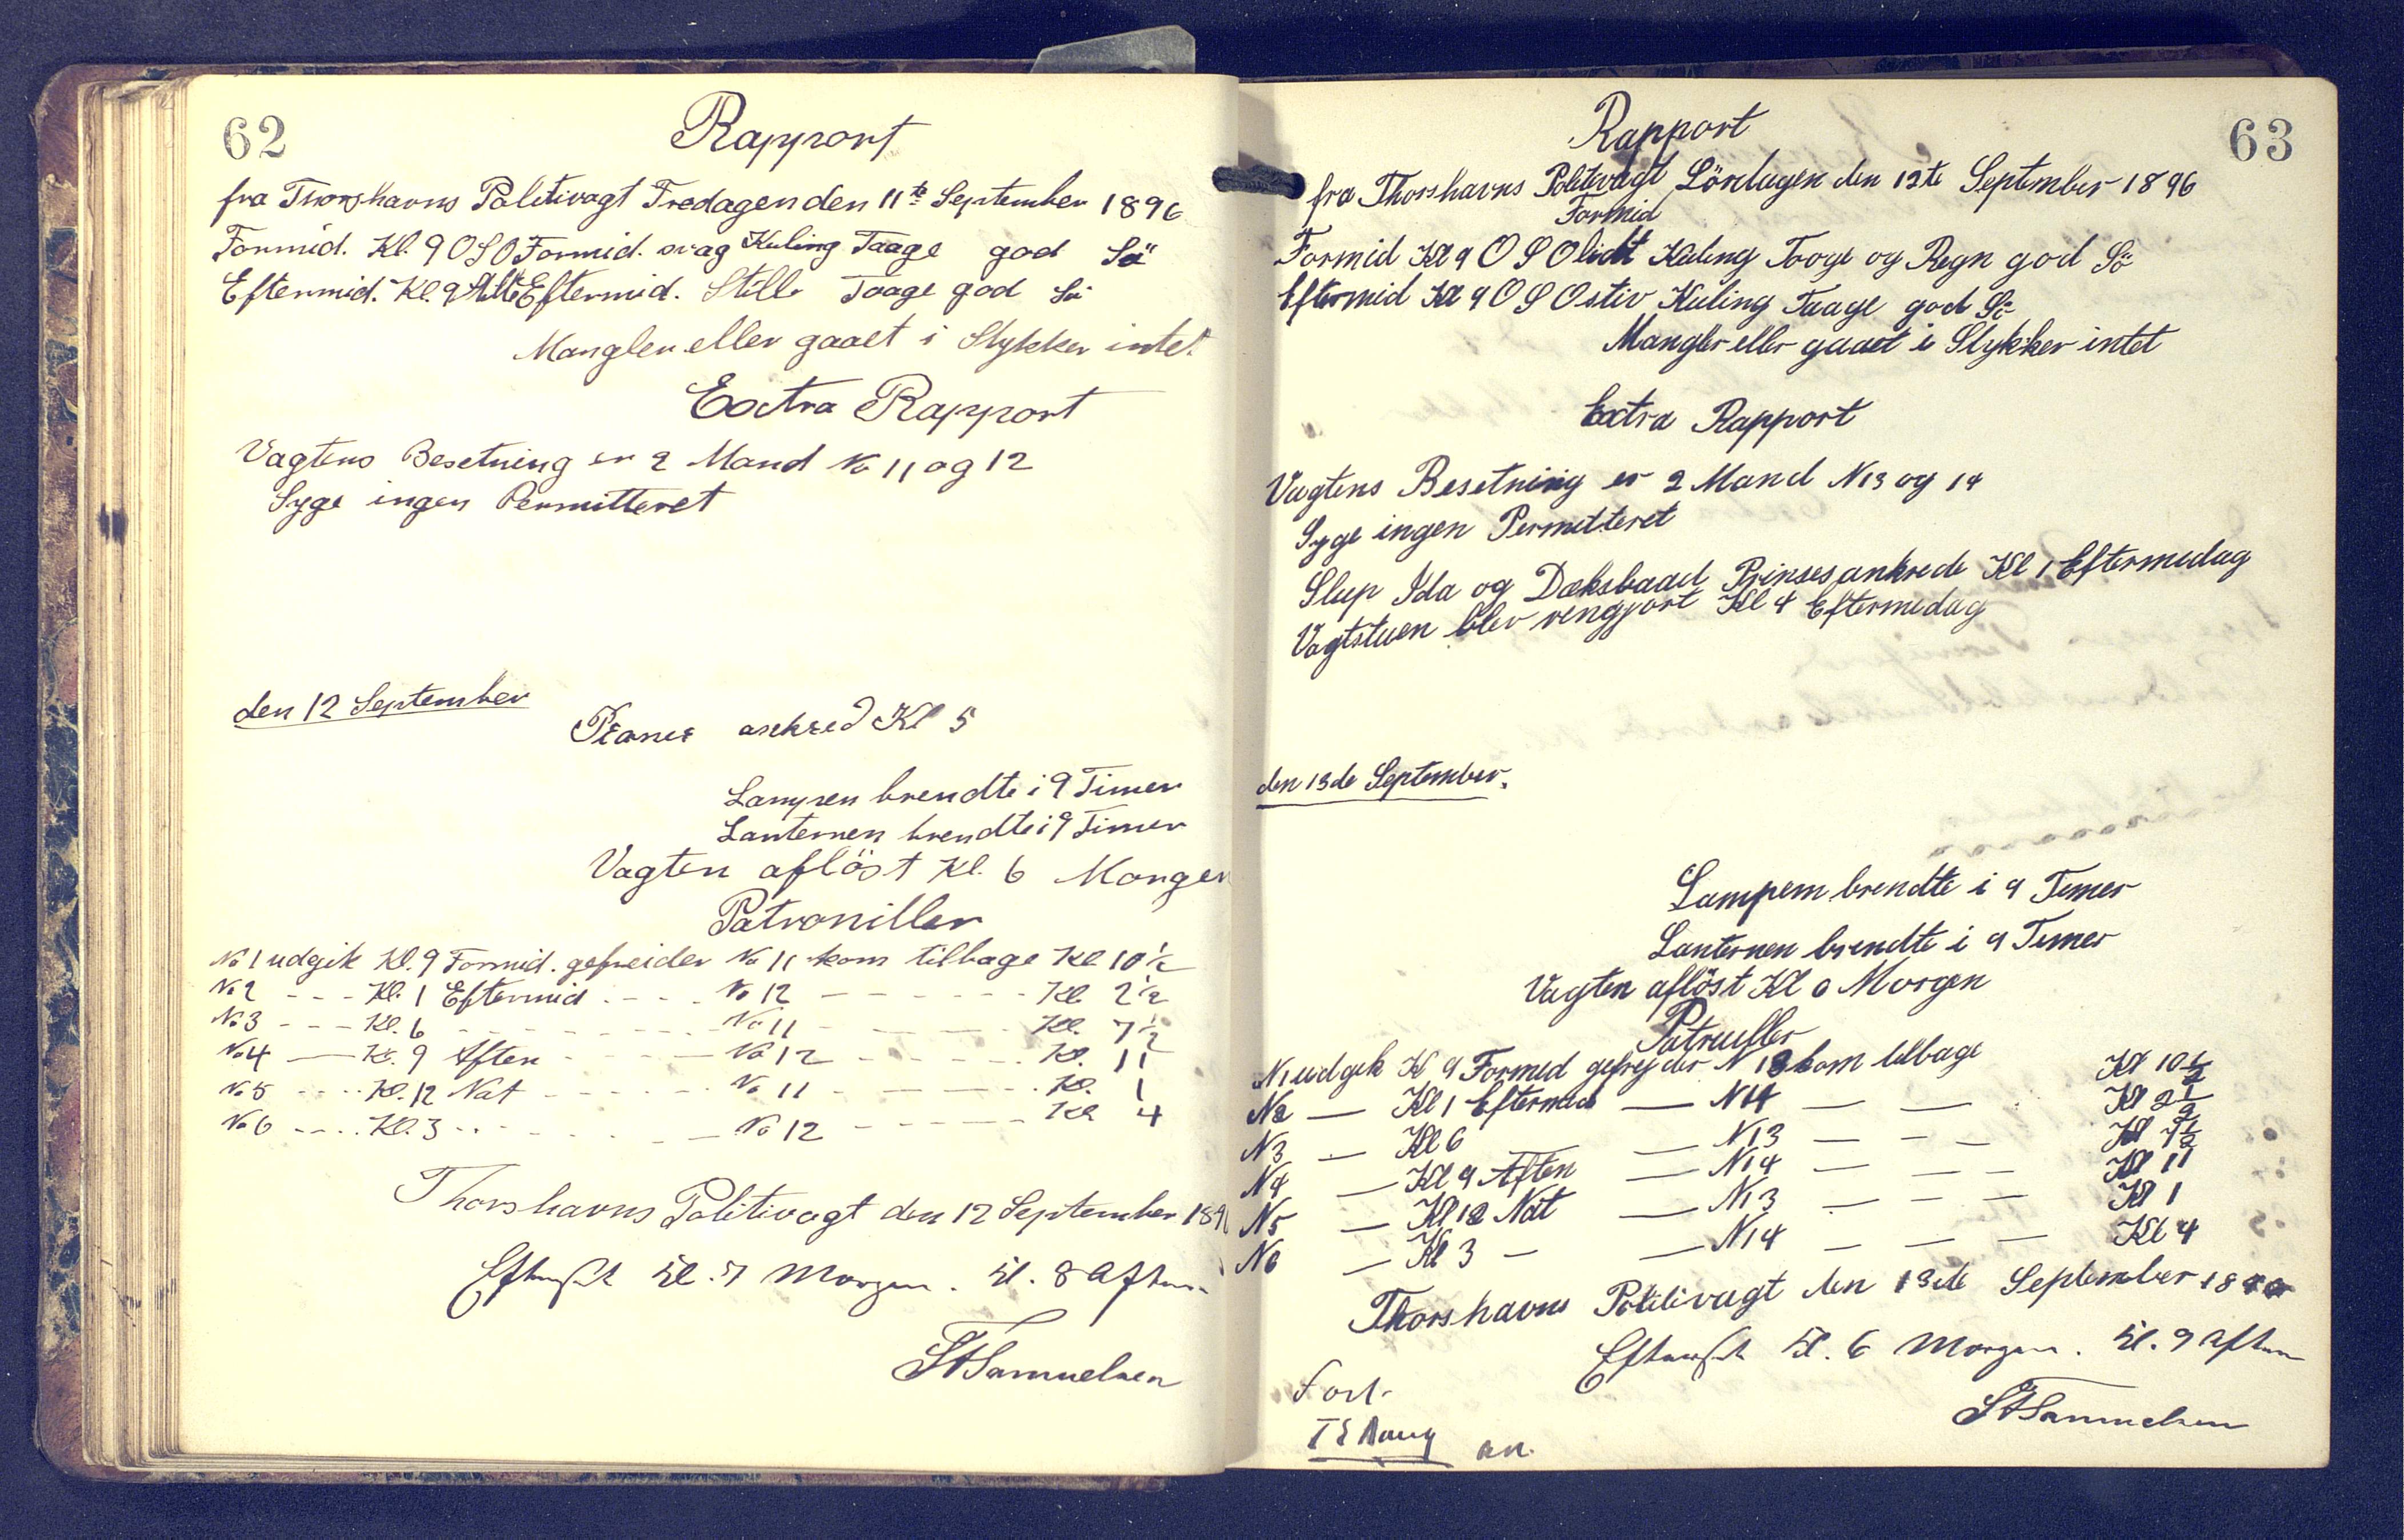 62
Rapport
fra Thorshavns Politivagt Fredagen den 11te September 1896
Formid. Kl. 9 OSO Formid. svag Kuling Taage god Sö
Eftermid. Kl. 9 Eftermid. Stille Taage god Sö
Mangler eller gaaet i Stykker intet
Extra Rapport
Vagtens Besetning er 2 Mand No 11 og 12
Syge ingen Permitteret
den 12 September
ankred Kl 5
Lampen brendte i 9 Timer
Lanternen brendte i 9 Timer
Vagten aflöst Kl. 6 Morgen
Patrouiller
No 1 udgik Kl. 9 Formid. gefreider No 11 kom tilbage Kl 10 1/2
No 2 - - - Kl. 1 Eftermid - - - No 12 - - - - - Kl 2 1/2
No 3 - - - Kl. 6 - - - - - - - No 11 - - - - - Kl. 7 1/2
No 4 — Kl. 9 Aften - - - — No 12 - - - - - Kl. 11
No 5 - - - - Kl. 12 Nat - - - - - No 11 - - - - - Kl. 1
No 6 - - - - Kl. 3 - - - - - — No 12 - - - - - Kl 4
Thorshavns Politivagt den 12 September 189
Eftersét Kl. 7 Morgen. Kl. 8 Aften
Samuelsen
63
Rapport
fra Thorshavns Politivagt Lördagen den 12te September 1896
Formid
Formid Kl 9 OSO lidt Kuling Taage og Regn god Sö
Eftermid Kl 9 OSO stiv Kuling Taage god Sö
Mangler eller gaaet i Stykker intet
Extra Rapport
Vagtens Besetning er 2 Mand N 13 og 14
Syge ingen Permitteret
Slup Ida og Dæksbaad Prinses ankrede Kl 1 Eftermedag
Vagtstuen blev rengjort Kl 4 Eftermedag
den 13de September.
Lampem brendte i 9 Temer
Lanternen brendte i 9 Temer
Vagten aflöst Kl 6 Morgen
Patruller
N 1 udgik Kl 9 Formed gefrejder N 13 kom telbage Kl 10 1/2
N 2 — Kl 1 Eftermed — N 14 — — Kl 2 1/2
N 3 — Kl 6 — — N 13 — - — Kl 7 1/2
N 4 — Kl 9 Aften — N 14 — - — Kl 11
N 5 — Kl 12 Nat — N 13 — - — Kl 1
N 6 — Kl 3 — — N 14 — — — Kl 4
Thorshavns Politivagt den 13de September 1896
Eftersét Kl. 6 Morgen. Kl. 9 Aften
Samuelsen